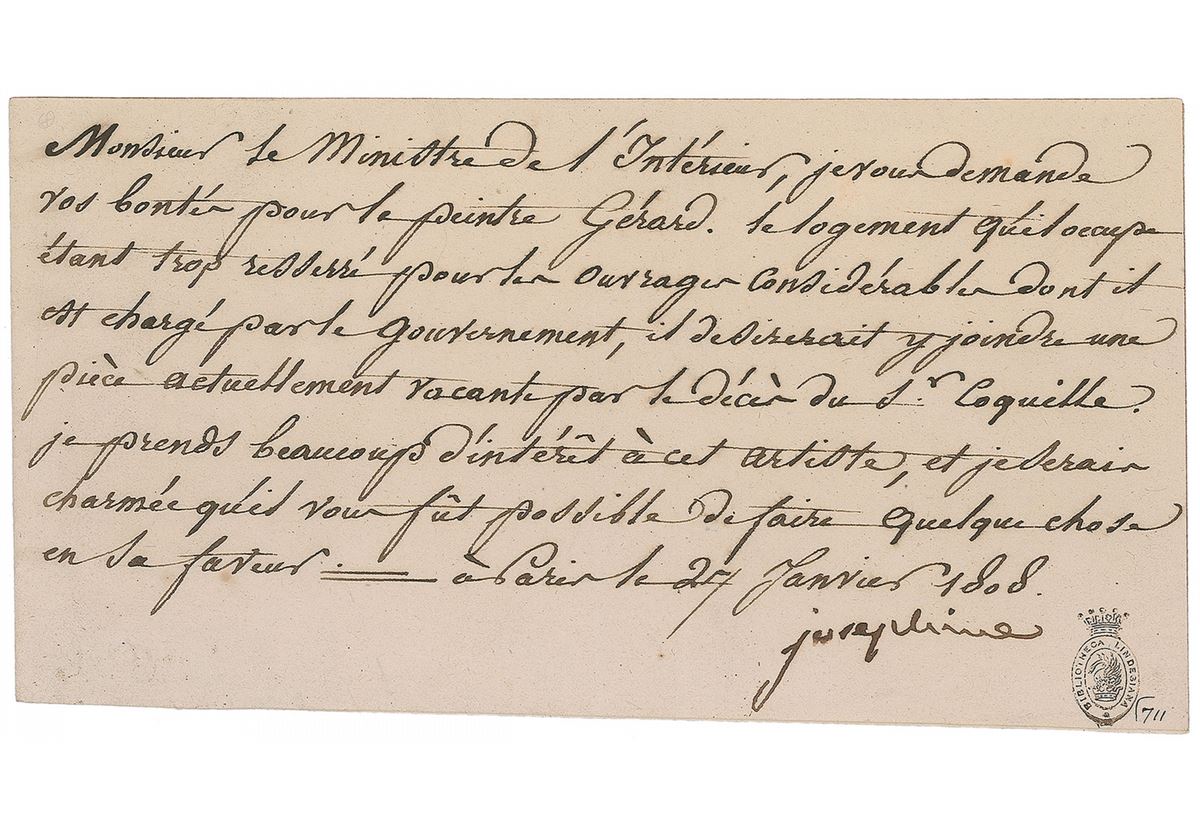 Monsieur le Ministre de l'Intérieur, je vous demande
vos bontés pour le peintre Gérard. le logement qu'il occupe
étant trop resserré pour les ouvrages considérables dont il
est chargé par le gouvernement, il desirerait y joindre une
pièce actuellement vacante par le décès du Sr. Coquille.
je prends beaucoup d'intérêt à cet artiste, et je serais
charmée qu'il vous fût possible de faire quelque chose
en sa faveur. à Paris le 27 Janvier 1808.
josephine
BIBLIOTHECA LINDESIANA
711